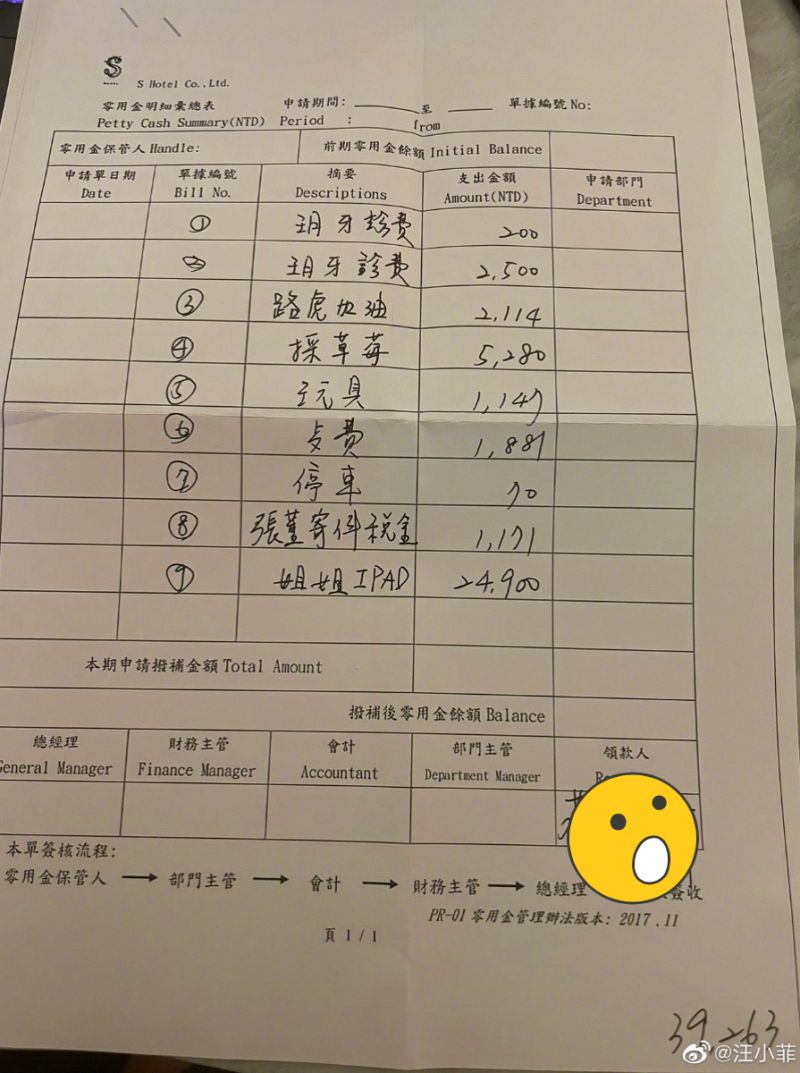 S
S Hotel Co.,Ltd.
零用金明細彙總表 申請期間: 至 單據編號 No:
Petty Cash Summary(NTD) Period : from
零用金保管人 Handle: 前期零用金餘額 Initial Balance
申請單日期 單據編號 摘要 支出金額 申請部門
Date Bill No. Descriptions Amount(NTD) Department
① 玥牙診費 200
② 玥牙診費 2,500
③ 路虎加油 2,114
④ 採草莓 5,280
⑤ 玩具 1,147
⑥ 費 1,881
⑦ 停車 70
⑧ 張董寄件稅金 1,171
⑨ 姐姐IPAD 24,900
本期申請撥補金額 Total Amount
撥補後零用金餘額 Balance
總經理 財務主管 會計 部門主管 領款人
General Manager Finance Manager Accountant Department Manager
本單簽核流程:
零用金保管人 → 部門主管 → 會計 → 財務主管 → 總經理 簽收
PR-01 零用金管理辦法版本: 2017.11
頁 1 / 1
39,263
@汪小菲